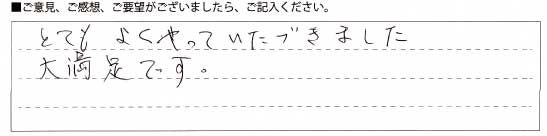 ■ご意見、ご感想、ご要望がございましたら、ご記入ください。
とても よくやっていたづきました
大満足です。